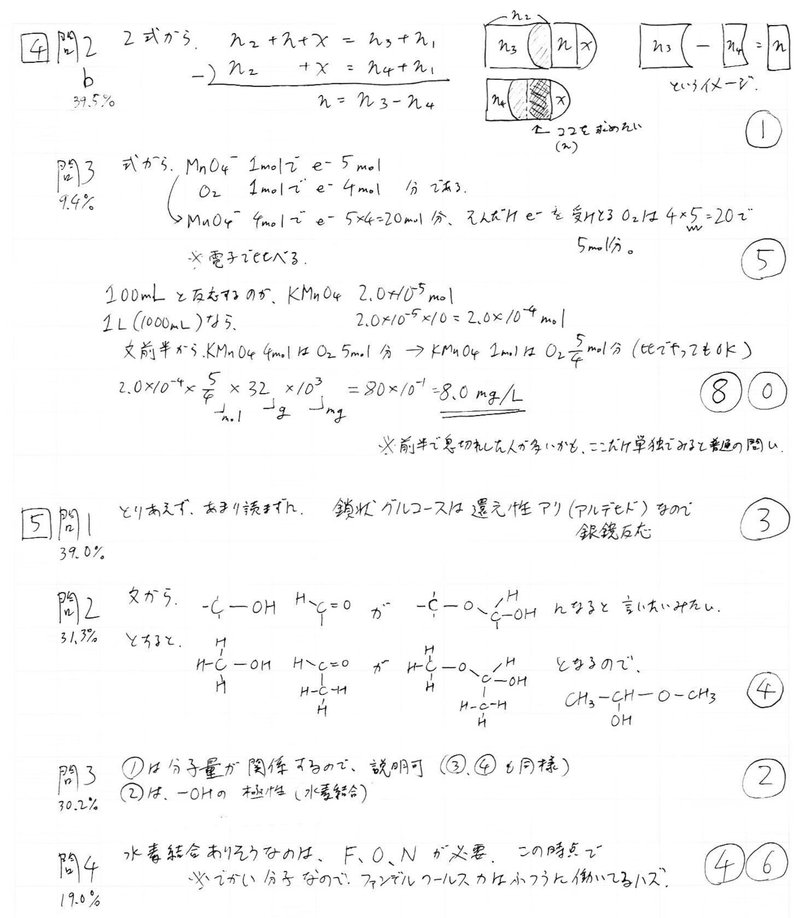 4 問2 b 39.5%
2式から、 n₂+n+x = n₃+n₁
−) n₂ +x = n₄+n₁
n = n₃−n₄
n₂
n₃ n x
n₄ x
↑ ココを求めたい
(n)
n₃ − n₄ = n
というイメージ.
①
問3 9.4%
式から、MnO₄⁻ 1molで e- 5mol
O₂ 1molで e- 4mol 分である.
MnO₄⁻ 4molで e- 5×4=20mol分、そんだけ e- を受けとる O₂は 4×5=20で
5mol分。
※電子で比べる.
⑤
100mLと反応するのが、KMnO₄ 2.0×10⁻⁵mol
1L(1000mL)なら、 2.0×10⁻⁵×10=2.0×10⁻⁴mol
文前半から、KMnO₄ 4molはO₂ 5mol分 → KMnO₄ 1molはO₂ 5/4 mol分(比でやってもOK)
2.0×10⁻⁴× 5/4 × 32 ×10³ =80×10⁻¹=8.0 mg/L
mol g mg
⑧ ⓪
※前半で息切れした人が多いかも、ここだけ単独でみると普通の問い.
5 問1 39.0%
とりあえず、あまり読まずに、 鎖状グルコースは還元性アリ(アルデヒド)なので
銀鏡反応
③
問2 31.3%
文から、 -C-OH H-C=O が -C-O-C-H -OH になると言いたいみたい.
とすると、
H H-C-OH H H-C=O H-C-H H が H H-C-O-C-H -OH H H-C-H H となるので、
CH₃-CH-O-CH₃
OH
④
問3 30.2%
①は分子量が関係するので、説明可(③、④も同様)
②は、-OHの極性(水素結合)
②
問4 19.0%
水素結合ありそうなのは、F、O、Nが必要. この時点で
※でかい分子なので、ファンデルワールス力はふつうに働いてるハズ.
④ ⑥